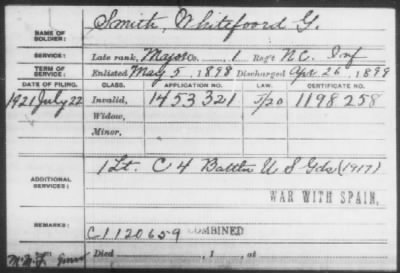 NAME OF SOLDIER: Smith, Whitefoord G.
SERVICE: Late rank, Major Co. 1 Reg't N.C. Inf
TERM OF SERVICE: Enlisted May 5, 1898 Discharged Apr. 26, 1899
DATE OF FILING. CLASS. APPLICATION NO. LAW. CERTIFICATE NO.
1921 July 22 Invalid, 1453321 5/20 1198258
Widow,
Minor,
ADDITIONAL SERVICES: 1 Lt. C 4 Battln U S Gds (1917)
WAR WITH SPAIN.
REMARKS: C1120659 COMBINED
Died , 1 , at